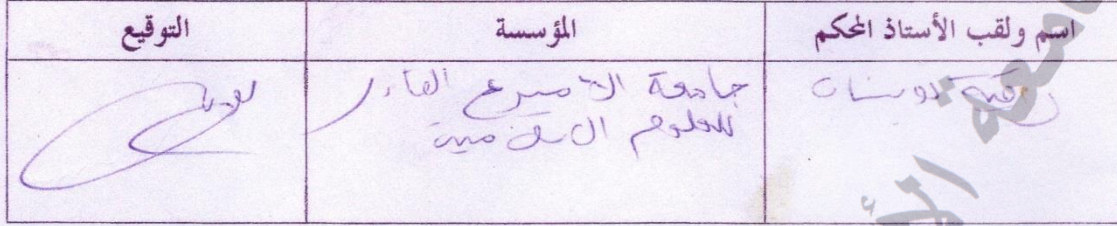 اسم ولقب الأستاذ المحكم
المؤسسة
التوقيع
رقية بوسنان
جامعة الامير ع القادر
للعلوم الاسلامية